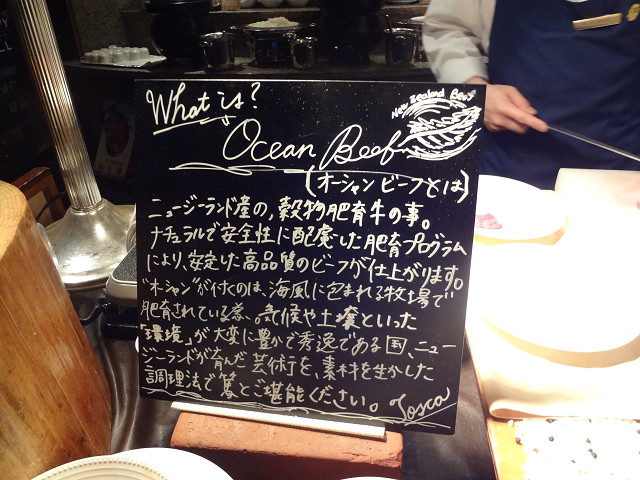 What is?
New Zealand Beef
Ocean Beef
(オーシャンビーフとは)
ニュージーランド産の,穀物肥育牛の事。
ナチュラルで安全性に配慮した肥育プログラム
により,安定した高品質のビーフが仕上がります。
"オーシャン"が付くのは、海風に包まれる牧場で
肥育されている為、気候や土壌といった
「環境」が大変に豊かで秀逸である国、ニュー
ジーランドが育んだ芸術を、素材を生かした
調理法で篤とご堪能ください。 Tosca